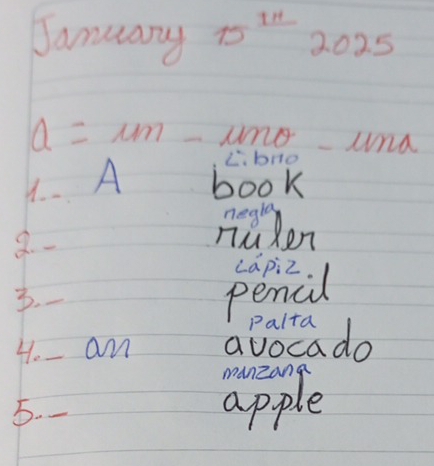 January 15TH 2025
a = un - uno - una
Libro
1.- A book
regla
2.- ruler
Lápiz.
3.- pencil
Palta
4.- an avocado
manzana
5.- apple